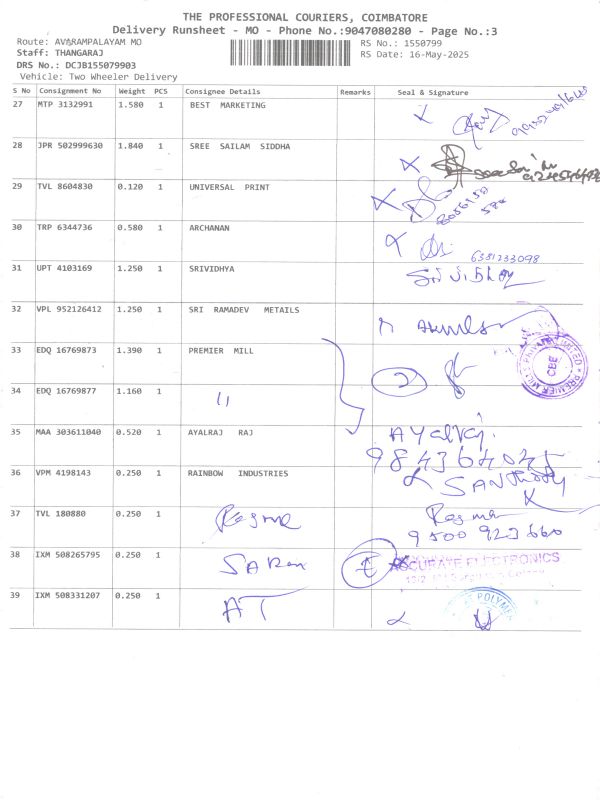 THE PROFESSIONAL COURIERS, COIMBATORE
Delivery Runsheet - MO - Phone No.:9047080280 - Page No.:3
Route: AVARAMPALAYAM MO
RS No.: 1550799
Staff: THANGARAJ
RS Date: 16-May-2025
DRS No.: DCJB155079903
Vehicle: Two Wheeler Delivery
S No Consignment No Weight PCS Consignee Details Remarks Seal & Signature
27 MTP 3132991 1.580 1 BEST MARKETING
28 JPR 502999630 1.840 1 SREE SAILAM SIDDHA
29 TVL 8604830 0.120 1 UNIVERSAL PRINT
30 TRP 6344736 0.580 1 ARCHANAN 6381233098
31 UPT 4103169 1.250 1 SRIVIDHYA
32 VPL 952126412 1.250 1 SRI RAMADEV METAILS
33 EDQ 16769873 1.390 1 PREMIER MILL 2
CBE
34 EDQ 16769877 1.160 1 11
35 MAA 303611040 0.520 1 AYALRAJ RAJ AYalraj
984364045
36 VPM 4198143 0.250 1 RAINBOW INDUSTRIES
37 TVL 180880 0.250 1 Rasma Rasma
9500923660
38 IXM 508265795 0.250 1 SARan
ACCURATE ELECTRONICS
39 IXM 508331207 0.250 1 AT
POLYMER